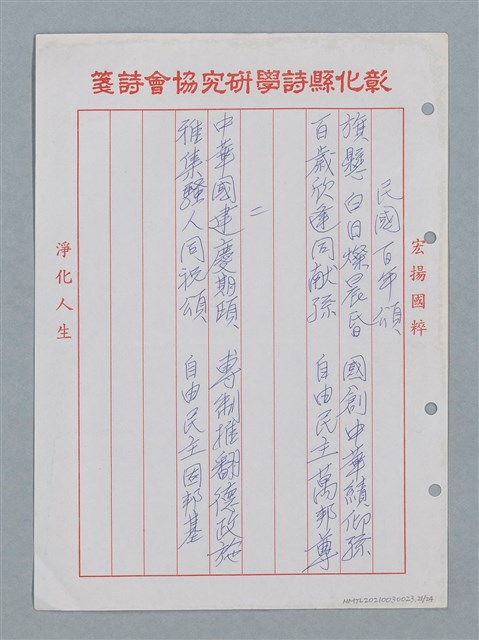 彰化縣詩學研究協會詩箋
宏揚國粹
民國百年頌
旗懸白日燦晨昏　國創中華績仰孫
百歲欣逢同献　自由民主萬邦尊
二
中華國建慶期頤　專制推翻德政施
雅集騷人同祝頌　自由民主固邦基
淨化人生